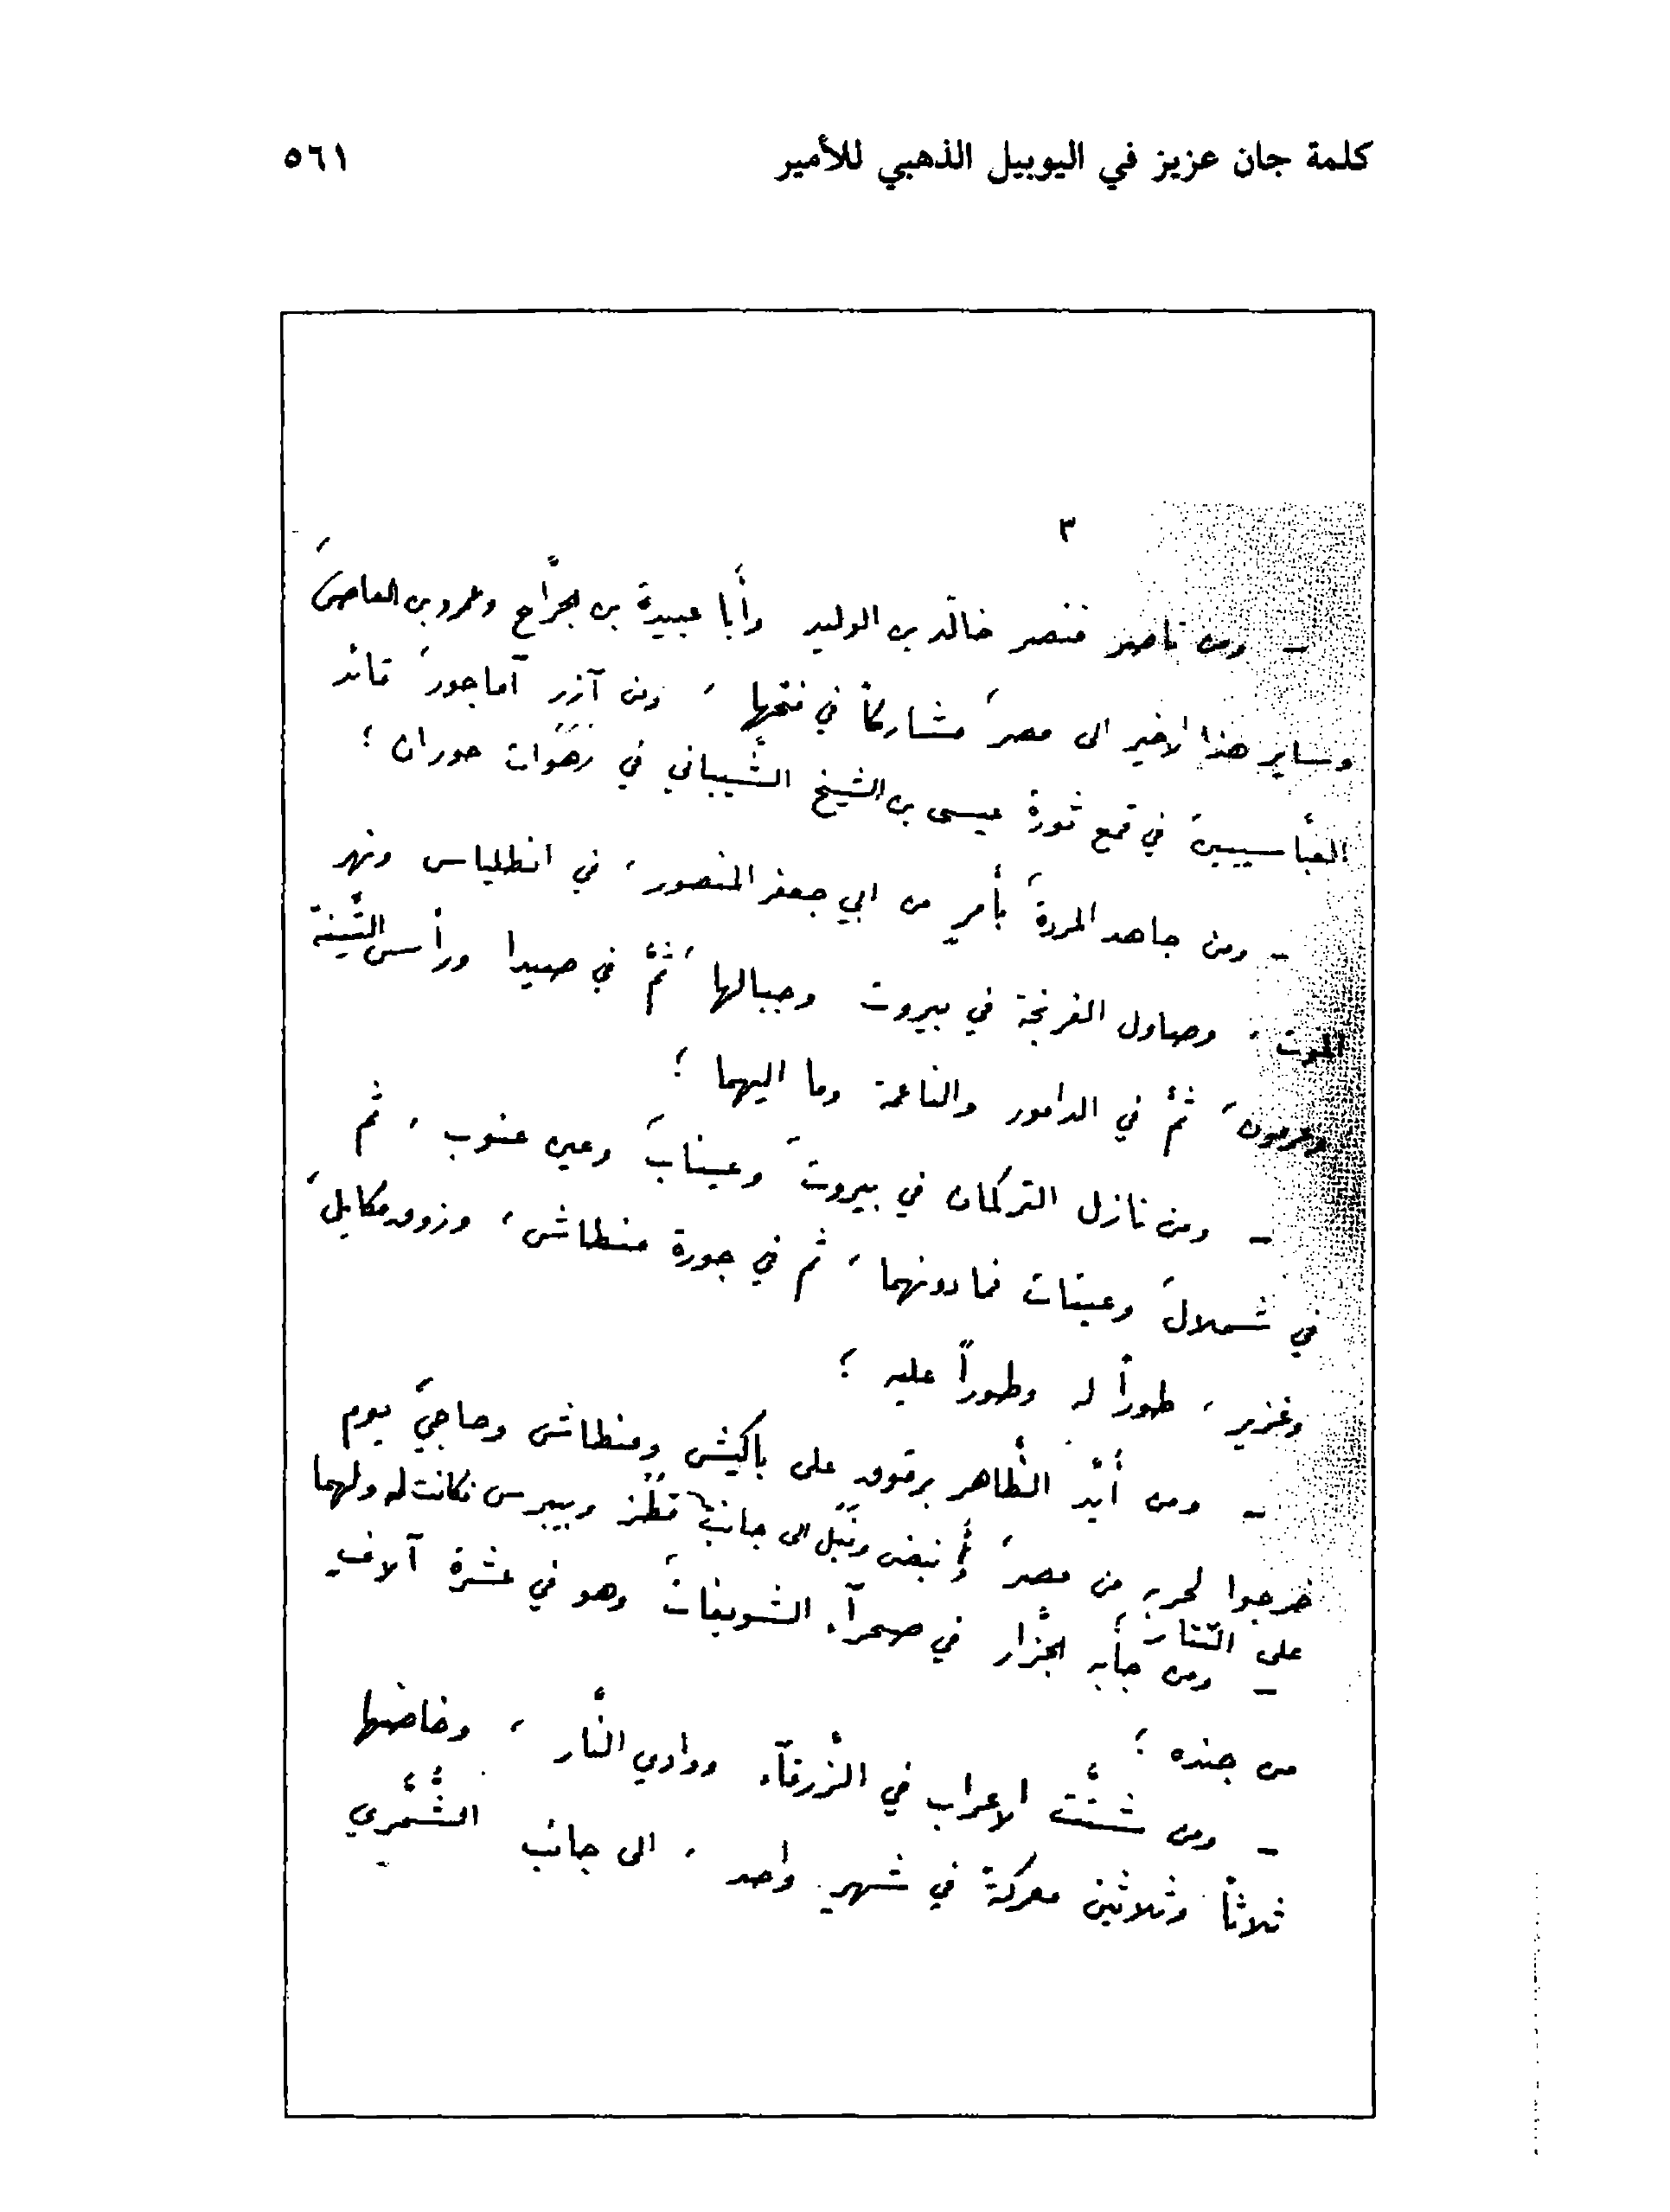 كلمة جان عزيز في اليوبيل الذهبي للأمير ٥٦١
٣
- ومن ناصر فنصر خالد بن الوليد وأبا عبيدة بن الجرّاح وعمرو بن العاص،
وساير هذا الأخير الى مصر، مشاركاً في فتحها، ومن آزر آماجور، قائد
العبّاسيين، في قمع ثورة عيسى بن الشيخ الشّيباني في رَهَوات حوران؛
- ومن جاهد المردة، بأمرٍ من ابي جعفر المنصور، في انطلياس ونهر
الموت، وصاول الفرنجة في بيروت وجبالها، ثمّ في صيدا ورأس التّينة
وعرمون، ثمّ في الدامور والناعمة وما اليهما؛
- ومن نازل التركمان في بيروت، وعيناب، وعين عنوب، ثم
في شملال، وعيتات فما دونهما، ثم في جورة منطاش، وزوق مكايل،
وغزير، طوراً له وطوراً عليه؛
- ومن أيّد الظّاهر برقوق على باكيش ومنطاش وحاجي، يوم
خرجوا لحربه من مصر، وأنبض ونبّل الى جانب قطز وبيبرس فكانت له ولهما
على التّتار،
- ومن جأبه الجزّار في صحرآء الشويفات، وهو في عشرة آلافٍ
من جنده؛
- ومن شتّت الاعراب في الزّرقآء ووادي النّار، وخاضها
ثلاثاً وثلاثين معركة في شهرٍ واحد، الى جانب الشّمّري